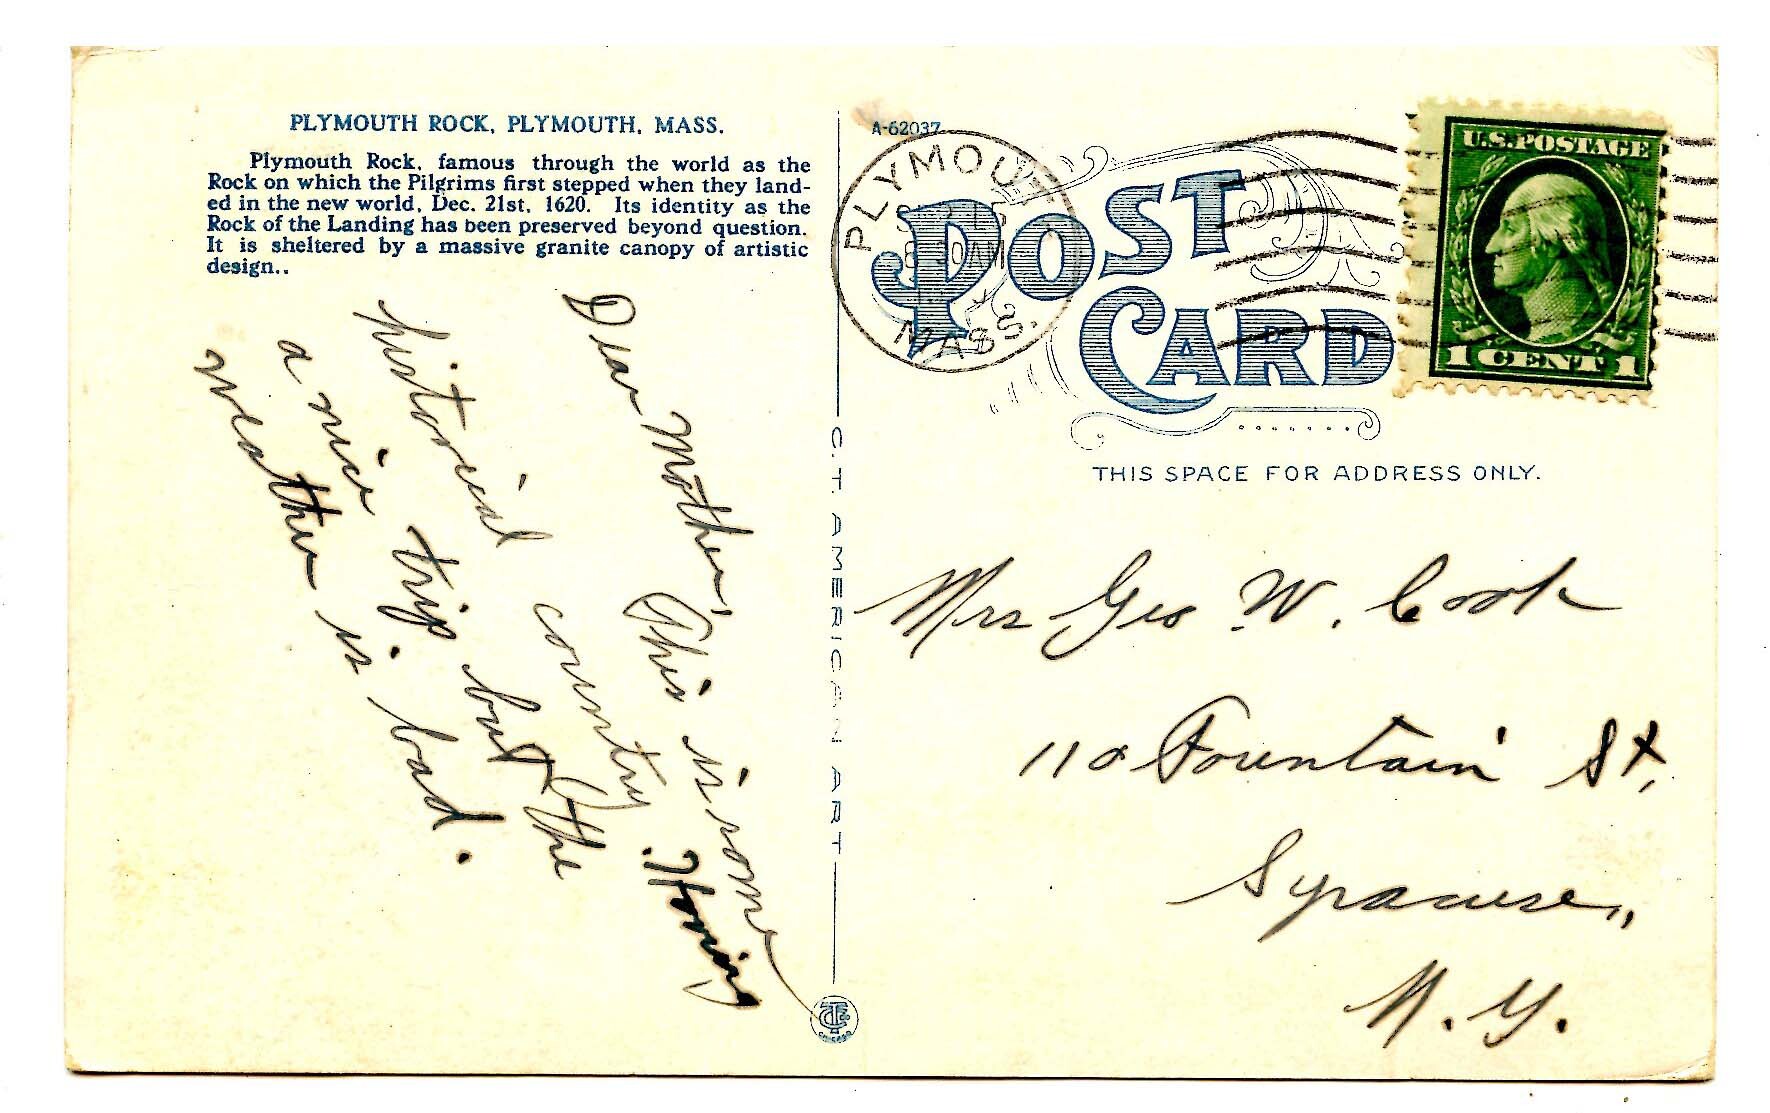 PLYMOUTH ROCK, PLYMOUTH, MASS.
Plymouth Rock, famous through the world as the
Rock on which the Pilgrims first stepped when they land-
ed in the new world, Dec. 21st, 1620. Its identity as the
Rock of the Landing has been preserved beyond question.
It is sheltered by a massive granite canopy of artistic
design..
Dear Mother,
This is some
historical country. Having
a nice trip but the
weather is bad.
C.T. AMERICAN ART
A-62037
PLYMOUTH
30 AM
MASS.
POST
CARD
U.S. POSTAGE
1 CENT 1
THIS SPACE FOR ADDRESS ONLY.
Mrs Geo W. Cook
Fountain St,
Syracuse,,
N.Y.